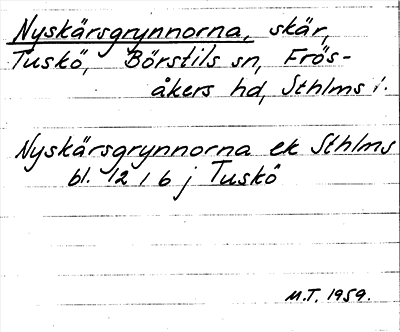 Nyskärsgrynnorna, skär,
Tuskö, Börstils sn, Frös-
åkers hd, Sthlms l.
Nyskärsgrynnorna ek Sthlms
bl. 12 I 6 j Tuskö
M.T. 1959.